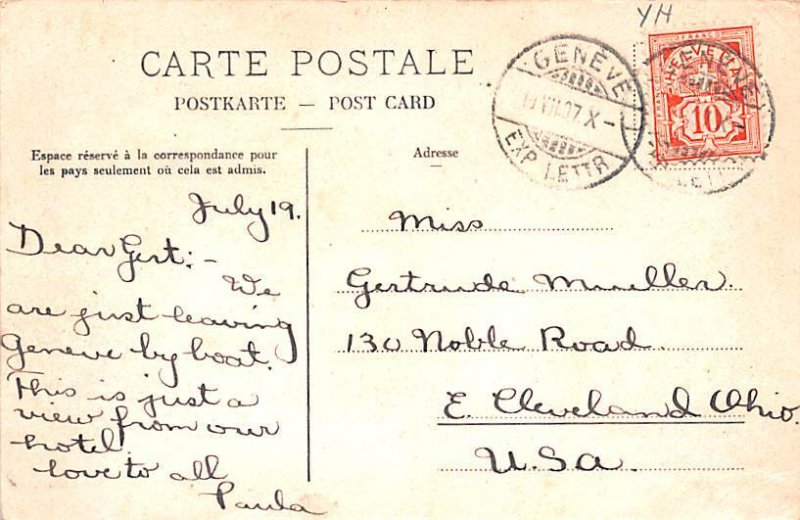 YH
CARTE POSTALE
POSTKARTE — POST CARD
Espace réservé à la correspondance pour
les pays seulement où cela est admis.
Adresse
GENÈVE
VII.07 X –
EXP. LETTR
FRANCO
HELVETIA
10
July 19.
Dear Gert: –
We
are just leaving
Geneve by boat.
This is just a
view from our
hotel.
love to all
Paula
Miss
Gertrude Mueller.
130 Noble Road.
E. Cleveland Ohio.
U.S.a.